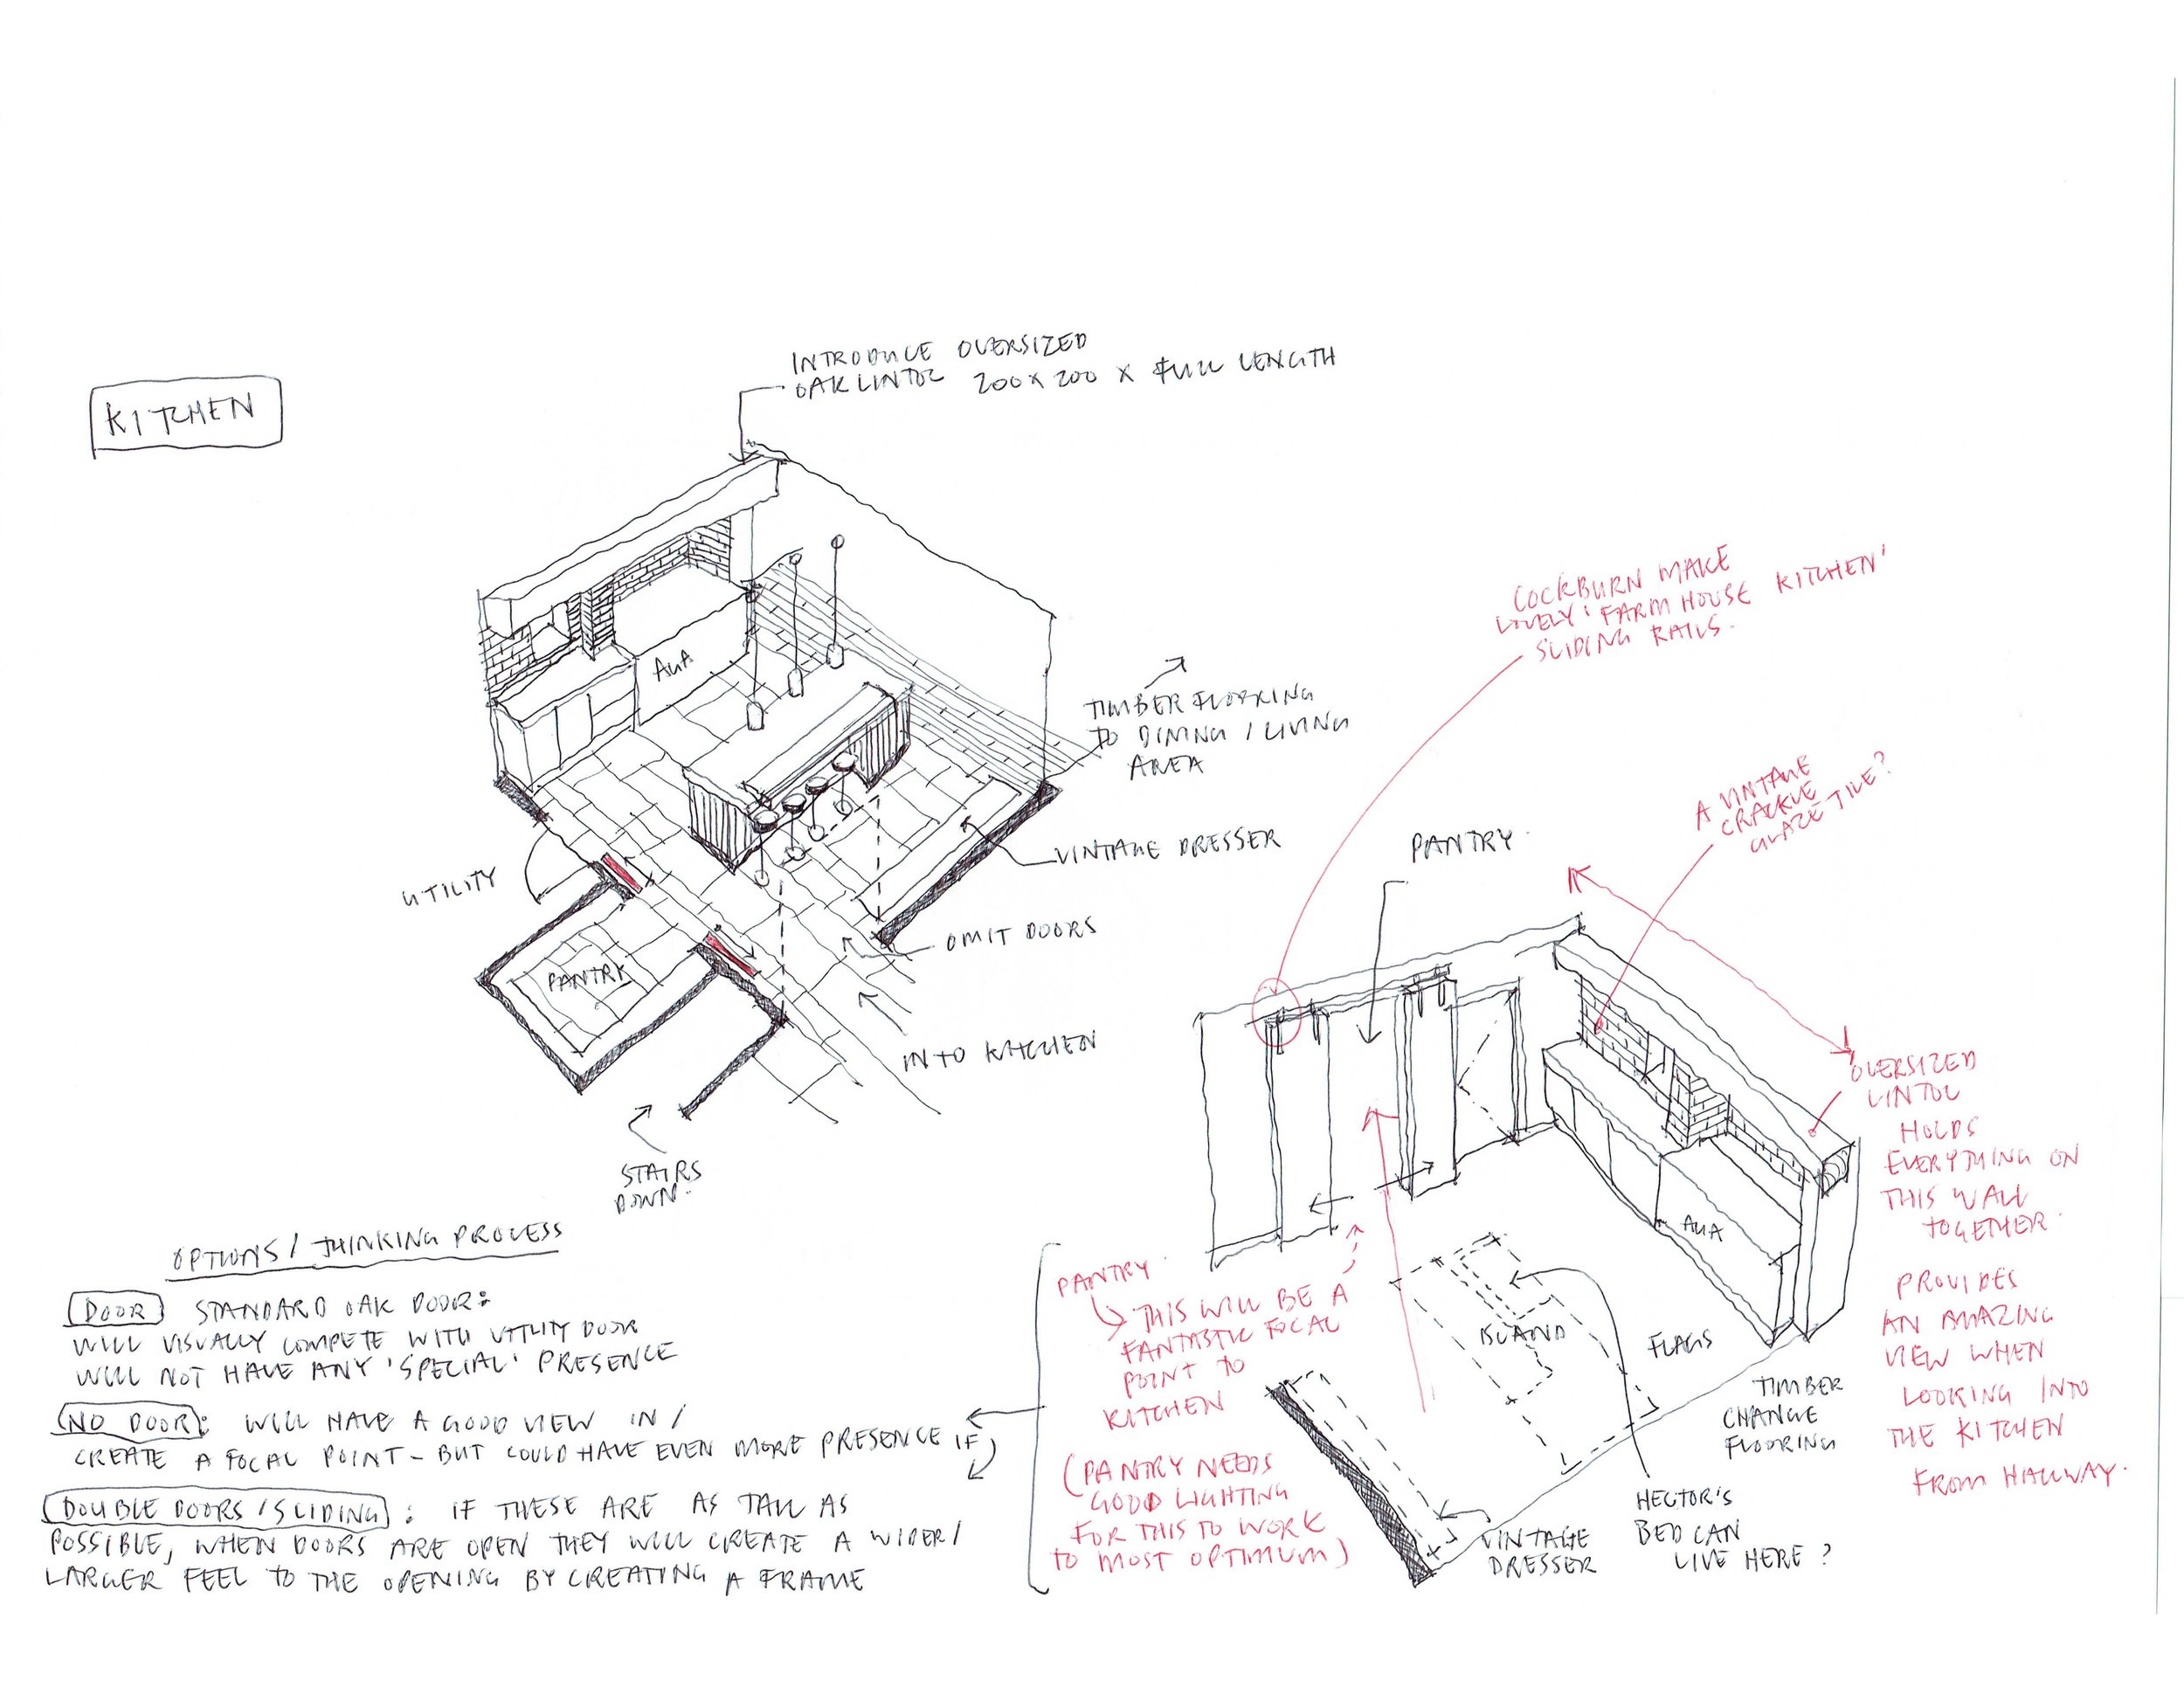 KITCHEN
INTRODUCE OVERSIZED
OAK LINTOL 200 X 200 X FULL LENGTH
AGA
TIMBER FLOORING
TO DINING / LIVING
AREA
VINTAGE DRESSER
UTILITY
OMIT DOORS
PANTRY
INTO KITCHEN
STAIRS
DOWN.
COCKBURN MAKE
LOVELY 'FARM HOUSE KITCHEN'
SLIDING RAILS.
A VINTAGE
CRACKLE
GLAZE TILE?
PANTRY.
OVERSIZED
LINTOL
HOLDS
EVERYTHING ON
THIS WALL
TOGETHER.
PROVIDES
AN AMAZING
VIEW WHEN
LOOKING INTO
THE KITCHEN
FROM HALLWAY.
AGA
ISLAND
FLAGS
TIMBER
CHANGE
FLOORING
HECTOR'S
BED CAN
LIVE HERE?
VINTAGE
DRESSER
PANTRY.
THIS WILL BE A
FANTASTIC FOCAL
POINT TO
KITCHEN
(PANTRY NEEDS
GOOD LIGHTING
FOR THIS TO WORK
TO MOST OPTIMUM)
OPTIONS / THINKING PROCESS
DOOR STANDARD OAK DOOR:
WILL VISUALLY COMPETE WITH UTILITY DOOR
WILL NOT HAVE ANY 'SPECIAL' PRESENCE
NO DOOR: WILL HAVE A GOOD VIEW IN /
CREATE A FOCAL POINT - BUT COULD HAVE EVEN MORE PRESENCE IF
DOUBLE DOORS / SLIDING: IF THESE ARE AS TALL AS
POSSIBLE, WHEN DOORS ARE OPEN THEY WILL CREATE A WIDER /
LARGER FEEL TO THE OPENING BY CREATING A FRAME